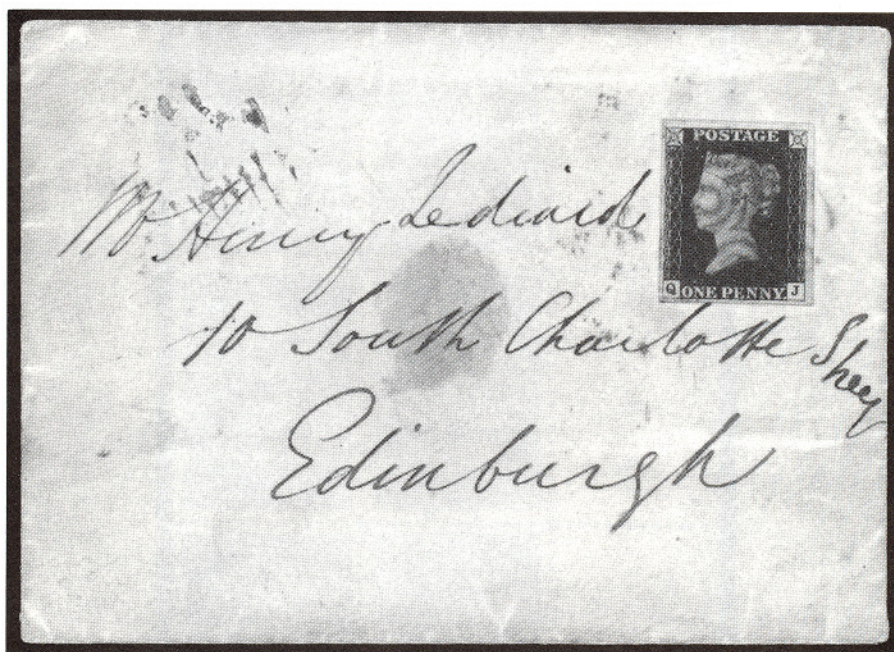 POSTAGE
Q ONE PENNY. J
Mr Henry Lediard
10 South Charlotte Street
Edinburgh